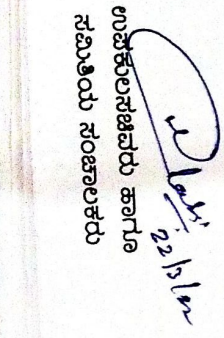 22/3/12
ಉಪಕುಲಸಚಿವರು ಹಾಗೂ
ಸಮಿತಿಯ ಸಂಚಾಲಕರು